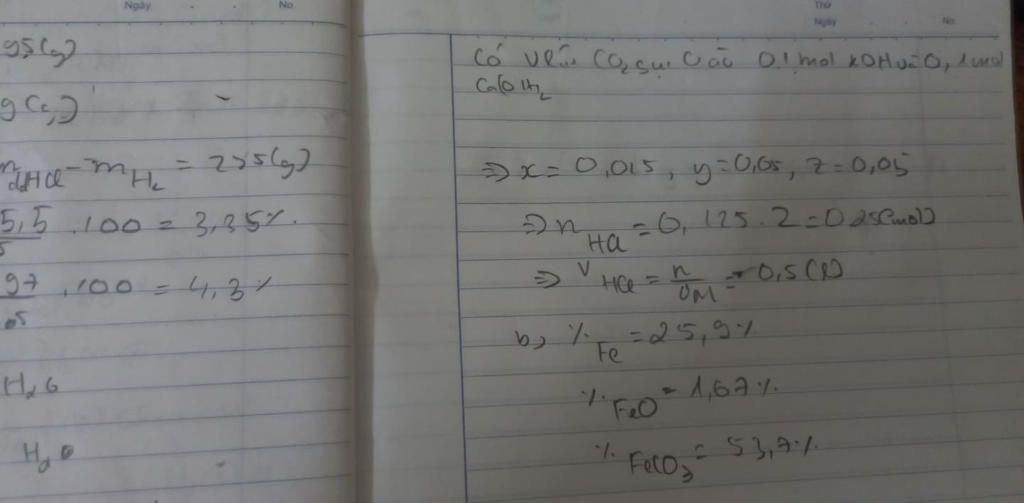 Ngày No.
95(g)
g(
dd HCl - m H₂ = 225(g)
5,5 .100 = 3,35%.
97 .100 = 4,3%
05
H₂O
H₂O
Thứ
Ngày No.
Có CO₂ sục vào 0,1 mol KOH và 0,1 mol
Ca(OH)₂
⇒ x = 0,015, y = 0,05, z = 0,05
⇒ n HCl = 0,125.2 = 0,25(mol)
⇒ V HCl = n/CM = 0,5(l)
b, % Fe = 25,9%
% FeO = 1,67%.
% FeCO₃ = 53,7%.